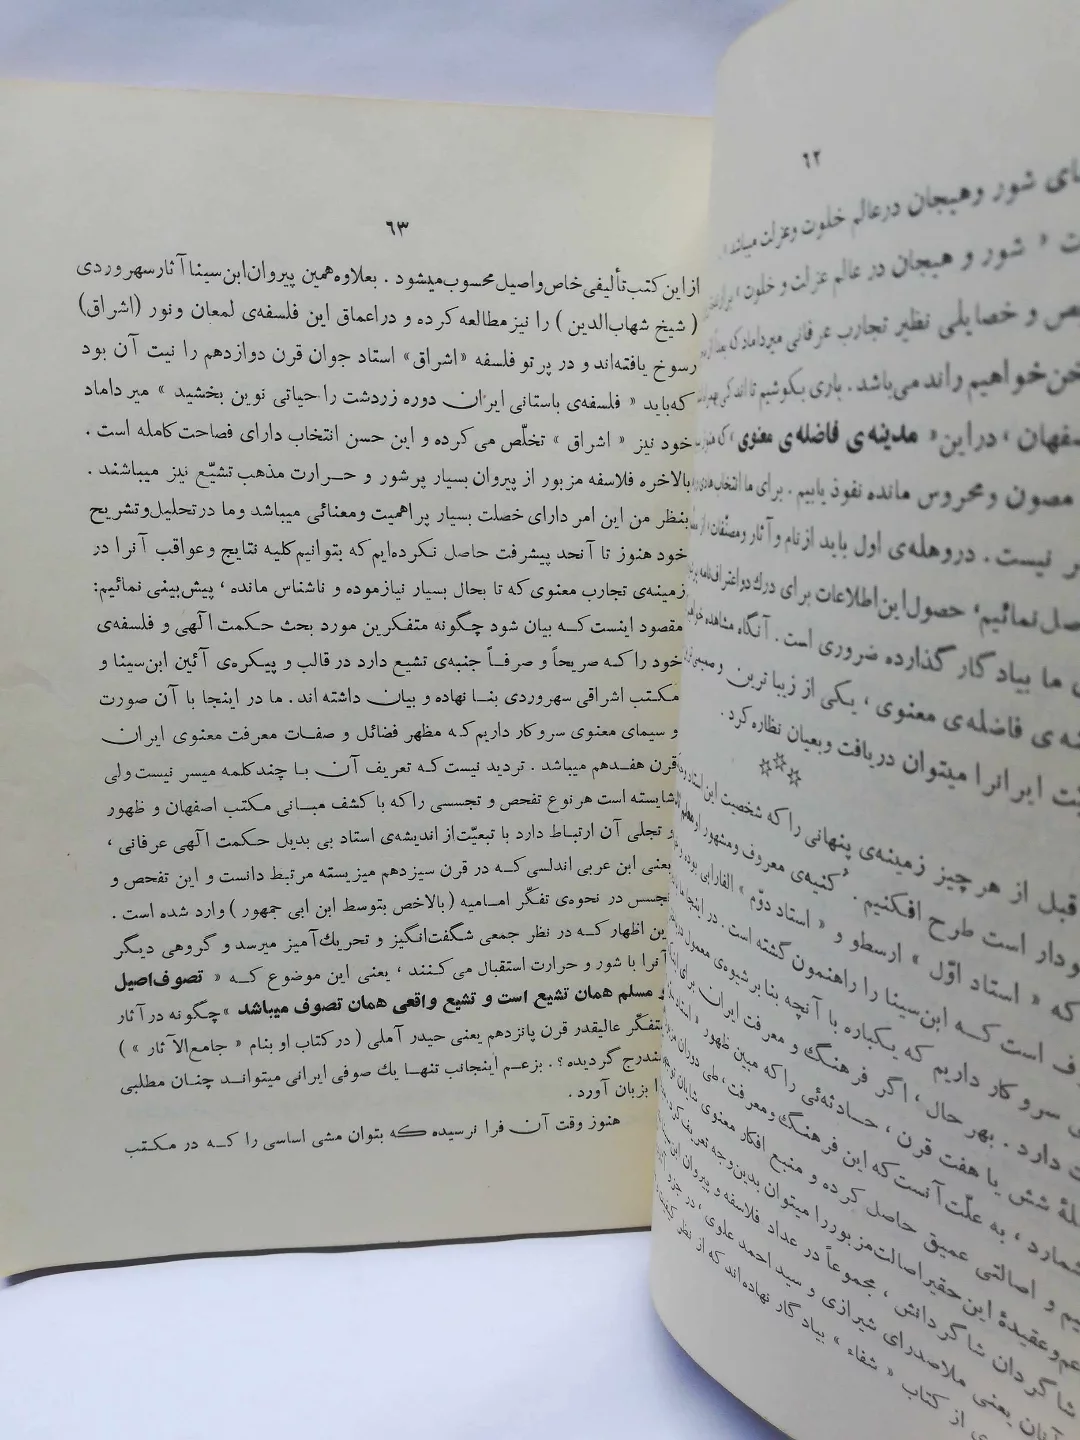 ٦٢
های شور وهیجان درعالم خلوت وعزلت میباشد
« شور و هیجان در عالم عزلت و خلوت »
و خصایلی نظیر تجارب عرفانی میرداماد که بعداً از
خواهیم راند می‌باشد . باری بکوشیم تا اندکی
دراین « مدینه‌ی فاضله‌ی معنوی » که
مصون ومحروس مانده نفوذ یابیم . برای ما انتخاب
نیست . دروهله‌ی اول باید ازنام و آثار ومصنّفات
نمائیم ، حصول این اطلاعات برای درك دو اعترافنامه
ما بیاد گار گذارده ضروری است . آنگاه مشاهده
فاضله‌ی معنوی ، یکی از زیبا ترین
ایرانرا میتوان دریافت وبعیان نظاره کرد .
قبل از هرچیز زمینه‌ی پنهانی را که شخصیت این استاد
است طرح افکنیم . کنیه‌ی معروف ومشهور او
که « استاد اوّل » ارسطو و « استاد دوّم » الفارابی بوده
است کـه ابن‌سینا را راهنمون گشته است . در اینجا
سرو کار داریم که یکباره با آنچه بنا برشیوه‌ی معمول
دارد . بهر حال ، اگر فرهنگ و معرفت ایران
شش یا هفت قرن ، حـادثه‌ئی را که مبین ظهور « استاد
، به علّت آنست که این فرهنگ ومعرفت ، طی دوران
و اصالتی عمیق حاصل کرده و منبع افکار معنوی شایان
وعقیدهٔ این حقیر اصالت مزبوررا میتوان بدین وجه تعریف کرد
شاگردان شاگردانش ، مجموعاً در عداد فلاسفه و پیروان
یعنی ملاصدرای شیرازی و سید احمد علوی ، در جزو
از کتاب « شفاء » بیاد گار نهاده‌اند که از نظر
٦٣
از این کتب تألیفی خاص و اصیل محسوب میشود . بعلاوه همین پیروان ابن سینا آثار سهروردی
( شیخ شهاب‌الدین ) را نیز مطالعه کرده و دراعماق این فلسفه‌ی لمعان ونور (اشراق)
رسوخ یافته‌اند و در پرتو فلسفه «اشراق» استاد جوان قرن دوازدهم را نیت آن بود
که باید « فلسفه‌ی باستانی ایران دوره زردشت را حیاتی نوین بخشید » میر داماد
خود نیز « اشراق » تخلّص می‌کرده و این حسن انتخاب دارای فصاحت کامله است .
بالاخره فلاسفه مزبور از پیروان بسیار پرشور و حـرارت مذهب تشیّع نیز میباشند .
بنظر من این امر دارای خصلت بسیار پراهمیت ومعنائی میباشد وما درتحلیل‌وتشریح
خود هنوز تا آنحد پیشرفت حاصل نکرده‌ایم که بتوانیم کلیه نتایج وعواقب آنرا در
زمینه‌ی تجارب معنوی که تا بحال بسیار نیازموده و ناشناس مانده ، پیش‌بینی نمائیم:
مقصود اینست کـه بیان شود چگونه متفکرین مورد بحث حکمت الهی و فلسفه‌ی
خود را کـه صریحاً و صرفـاً جنبه‌ی تشیع دارد در قالب و پیکره‌ی آئین ابن‌سینا و
مکتب اشراقی سهروردی بنـا نهاده و بیان داشته اند . ما در اینجا با آن صورت
و سیمای معنوی سروکار داریم کـه مظهر فضائل و صفـات معرفت معنوی ایران
قرن هفـدهم میباشد . تردید نیست کـه تعریف آن بـا چند کلمه میسر نیست ولی
شایسته است هر نوع تفحص و تجسسی را که با کشف مبـانی مکتب اصفهان و ظهور
و تجلی آن ارتبـاط دارد با تبعیّت از اندیشه‌ی استاد بی بدیل حکمت الهی عرفانی ،
یعنی ابن عربی اندلسی کـه در قرن سیزدهم میزیسته مرتبط دانست و این تفحص و
تجسس در نحوه‌ی تفکّر امـامیه ( بالاخص بتوسط ابن ابی جمهور ) وارد شده است .
این اظهار کـه در نظر جمعی شگفت‌انگیز و تحریك‌آمیز میرسد و گروهی دیگر
آنرا با شور و حرارت استقبال می کـنند ، یعنی این موضوع کـه « تصوف‌اصیل
و مسلم همان تشیع است و تشیع واقعی همان تصوف میباشد » چگونه در آثار
متفکّر عالیقدر قرن پانزدهم یعنی حیدر آملی ( در کتاب او بنام « جامع‌الآثار » )
مندرج گردیده ؟ . بزعـم اینجانب تنهـا یك صوفی ایرانی میتوانـد چنـان مطلبی
را بزبان آورد .
هنوز وقت آن فرا نرسیده که بتوان مشی اساسی را کـه در مکـتب